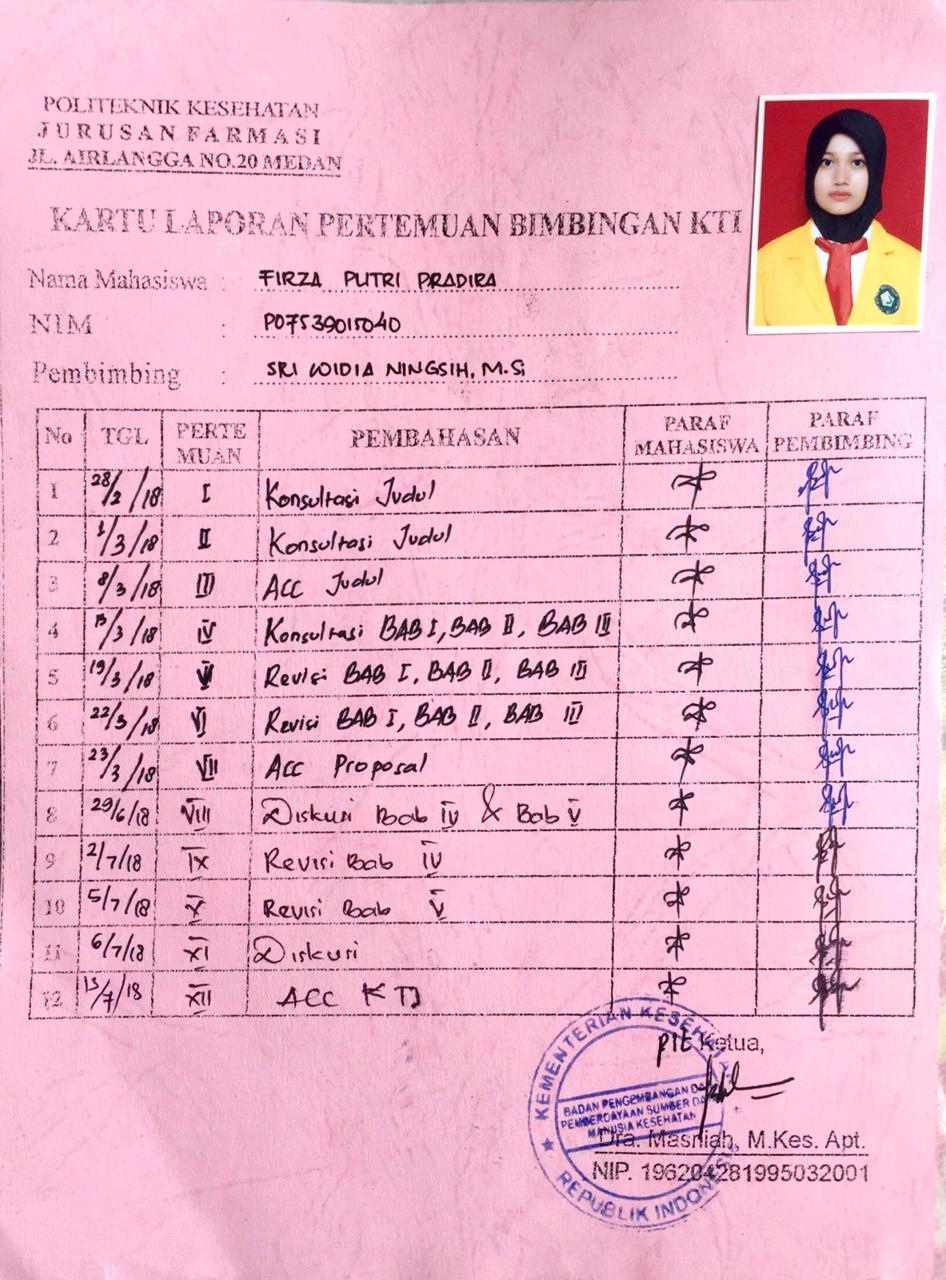 POLITEKNIK KESEHATAN
JURUSAN FARMASI
JL. AIRLANGGA NO.20 MEDAN
KARTU LAPORAN PERTEMUAN BIMBINGAN KTI
Nama Mahasiswa : FIRZA PUTRI PRADIRA
NIM : P07539015040
Pembimbing : SRI WIDIA NINGSIH, M.Si
No TGL PERTE MUAN PEMBAHASAN PARAF MAHASISWA PARAF PEMBIMBING
1 28/2/18 I Konsultasi Judul
2 1/3/18 II Konsultasi Judul
3 8/3/18 III ACC Judul
4 /3/18 IV Konsultasi BAB I, BAB II, BAB III
5 19/3/18 V Revisi BAB I, BAB II, BAB III
6 22/3/18 VI Revisi BAB I, BAB II, BAB III
7 23/3/18 VII Acc Proposal
8 29/6/18 VIII Diskusi Bab IV & Bab V
9 2/7/18 IX Revisi Bab IV
10 5/7/18 X Revisi Bab V
11 6/7/18 XI Diskusi
12 13/7/18 XII ACC KTI
Plt Ketua,
KEMENTERIAN KESEHAT
BADAN PENGEMBANGAN DA
PEMBERDAYAAN SUMBER DA
MANUSIA KESEHATAN
REPUBLIK INDONESIA
Dra. Masniah, M.Kes. Apt.
NIP. 196204281995032001